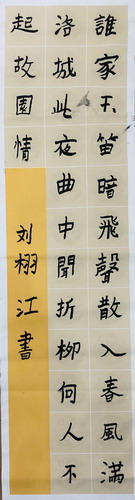 誰家玉笛暗飛聲散入春風滿
洛城此夜曲中聞折柳何人不
起故園情
刘栩江書